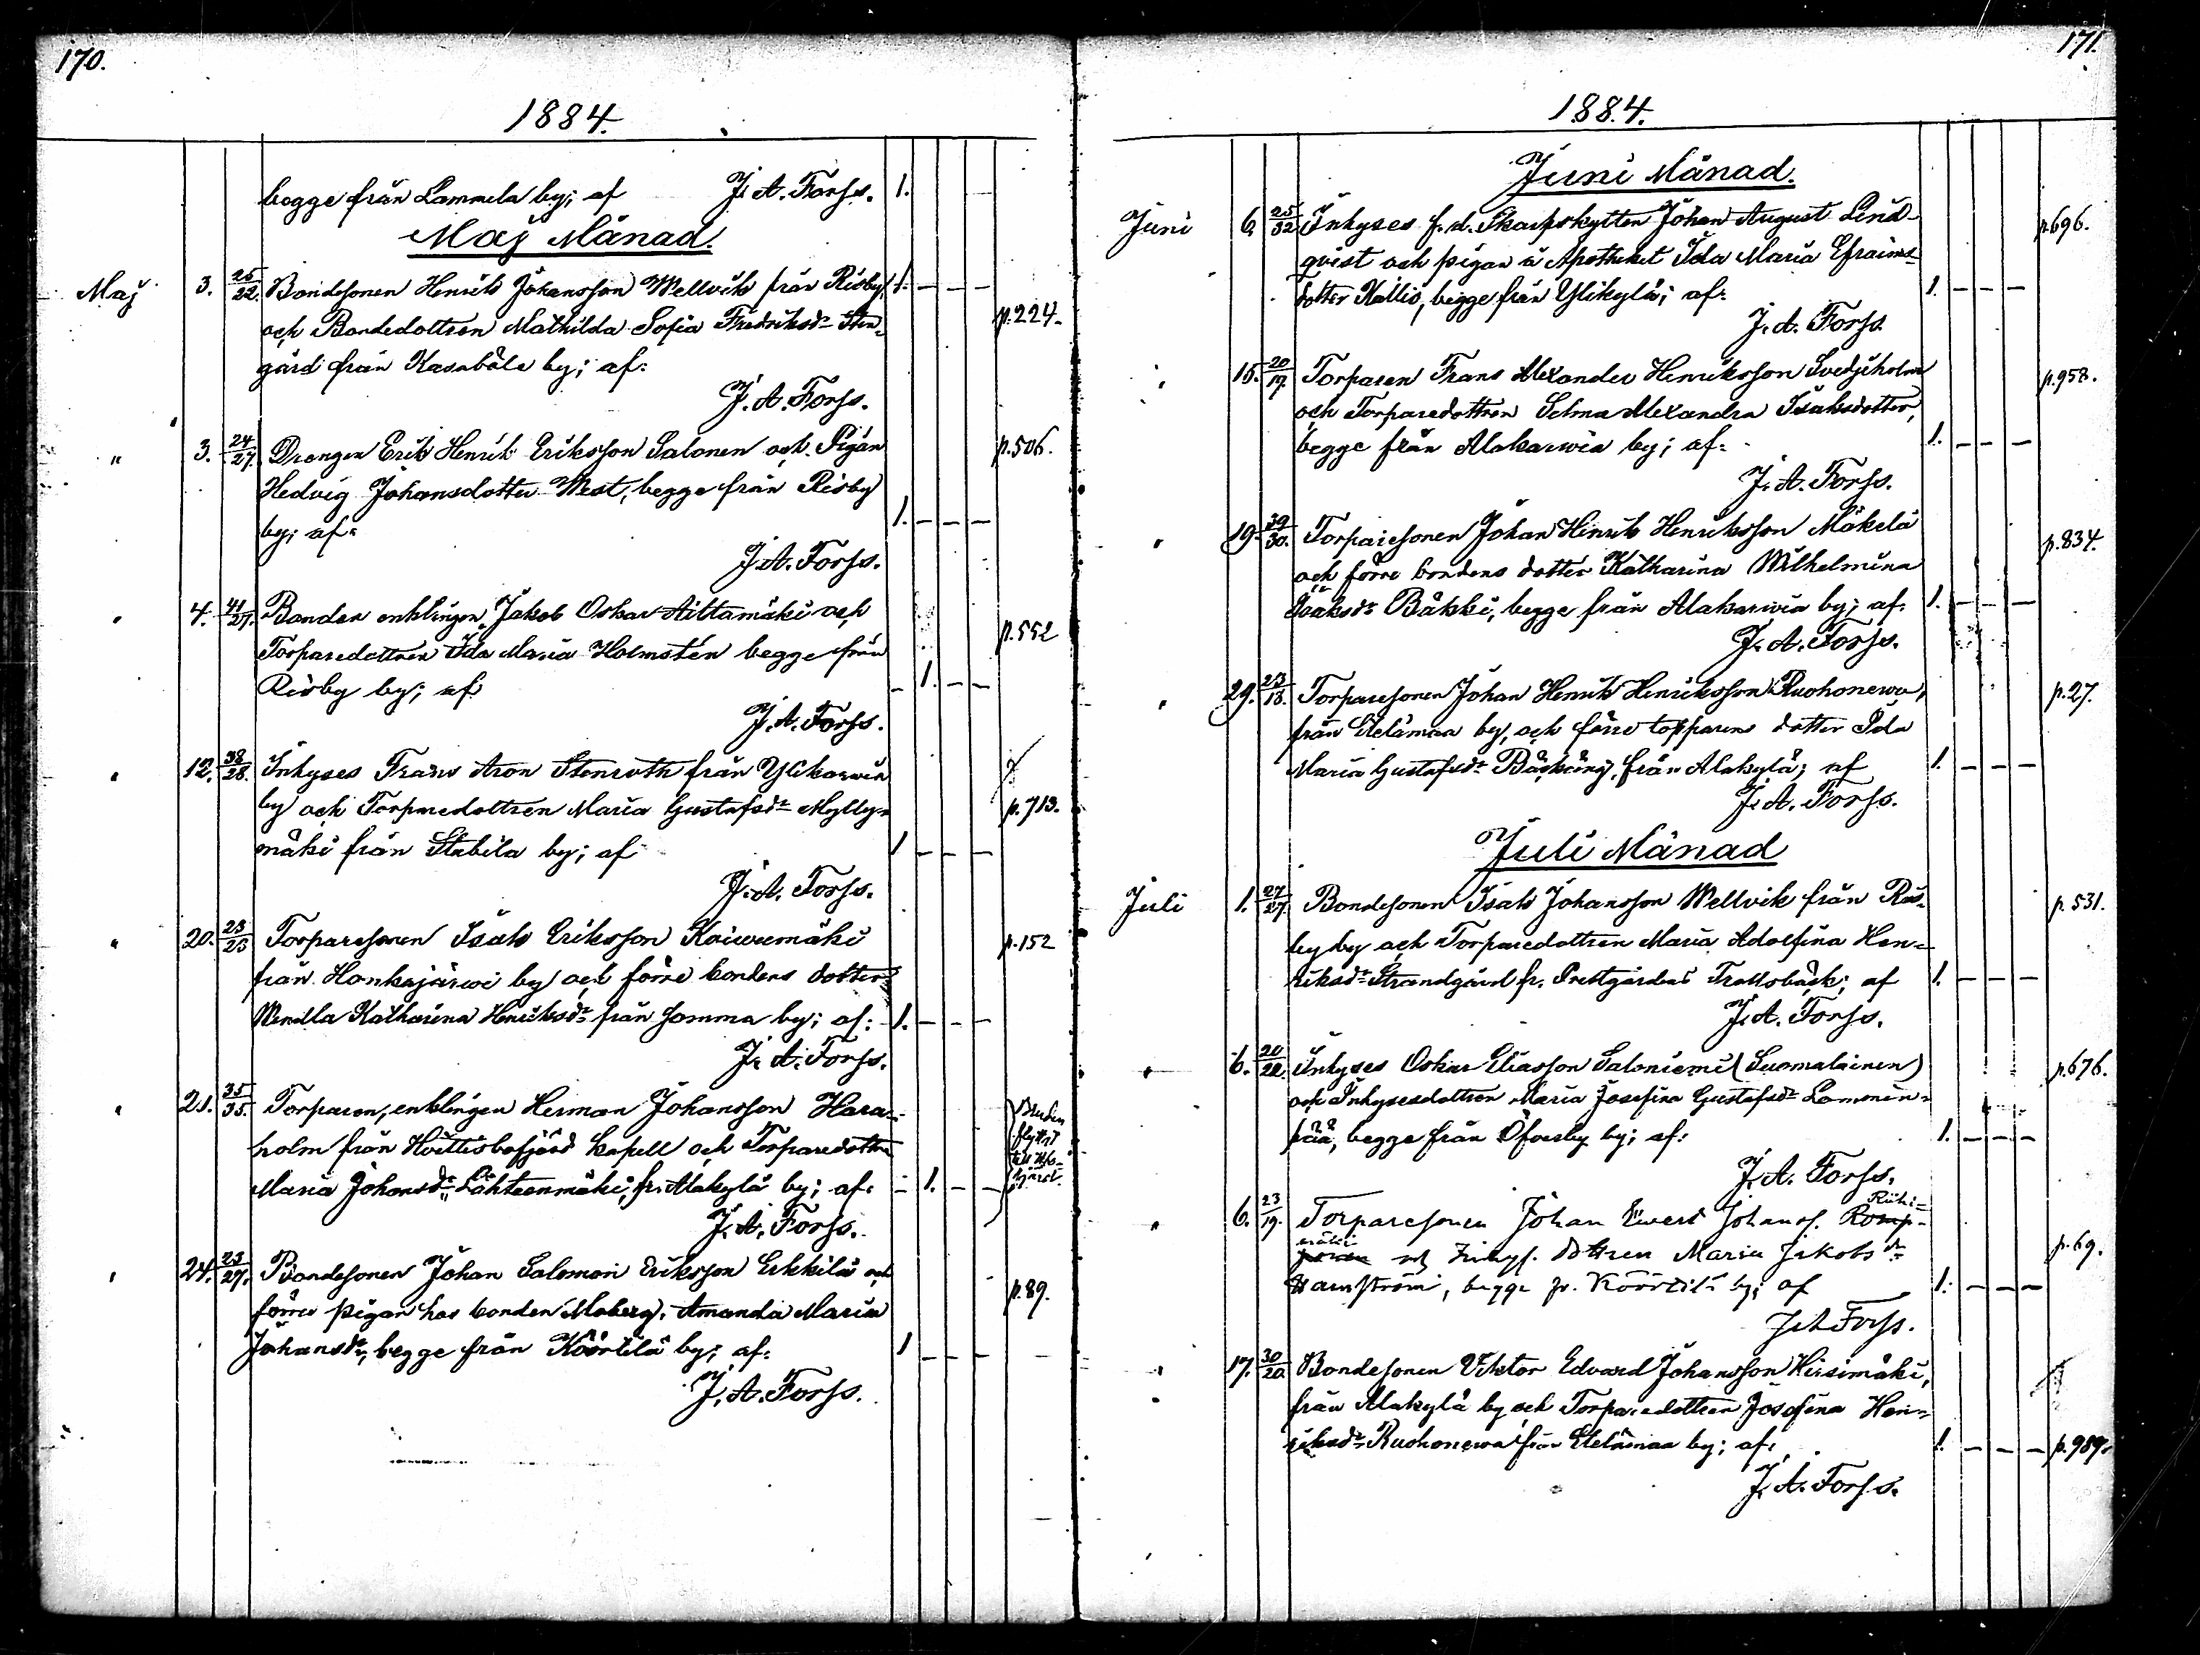 170.
1884.
begge från Lammela by; af J. A. Forss. 1.
Maj Månad.
Maj 3. 25/22. Bondesonen Henrik Johansson Wellvik från Risby 1. – – –
och Bondedottren Mathilda Sofia Fredriksdr Sten- p. 224.
gård från Kasaböle by; af:
J. A. Forss.
" 3. 24/27. Drengen Erik Henrik Eriksson Salonen och Pigan p. 506.
Hedvig Johansdotter West, begge från Risby
by; af: 1. – – –
J. A. Forss.
" 4. 41/27. Bonden enklingen Jakob Oskar Aittamäki och
Torparedottren Ida Maria Holmstén begge från p. 552
Risby by; af – 1. – –
J. A. Forss.
" 12. 38/28. Inhyses Frans Aron Stenroth från Ylikarwia
by och Torparedottren Maria Gustafsdr Mylly- p. 713.
mäki från Stabila by; af 1 – – –
J. A. Forss.
" 20. 23/23 Torparesonen Isak Eriksson Koiwumäki p. 152
från Honkajärwi by och förre bondens dotter
Wendla Katharina Henriksdr från Samma by; af: 1. – – –
J. A. Forss.
" 21. 35/35. Torparen, enklingen Herman Johansson Hara- Bruden
holm från Hvittisbofjärd kapell och Torparedottren flyttat
Maria Johansdr Lähteenmäki, fr. Alakylä by; af: – 1. – – till
J. A. Forss.
" 24. 23/27. Bondesonen Johan Salomon Eriksson Erkkilä och
förre pigan hos bonden Moberg, Amanda Maria p. 89.
Johansdr, begge från Köörtilä by; af: 1 – – –
J. A. Forss.
171.
1884.
Juni Månad.
Juni 6. 25/32 Inhyses f. d. Skarpskytten Johan August Lind- p. 696.
qvist och pigan å Apotheket Ida Maria Efraims-
dotter Kallio, begge från Ylikylä; af: 1. – – –
J. A. Forss.
" 15. 20/19. Torparen Frans Alexander Henriksson Svedjeholm p. 958.
och Torparedottren Selma Alexandra Isaksdotter,
begge från Alakarwia by; af: 1. – – –
J. A. Forss.
" 19. 39/30. Torparesonen Johan Henrik Henriksson Mäkelä p. 834.
och förre bondens dotter Katharina Wilhelmina
Isaksdr Bäkki, begge från Alakarwia by; af: 1. – – –
J. A. Forss.
" 29. 23/18. Torparesonen Johan Henrik Henriksson Ruohonewa, p. 27.
från Etelämaa by, och förre torparens dotter Ida
Maria Gustafsdr från Alakylä; af 1. – – –
J. A. Forss.
Juli Månad
Juli 1. 27/27. Bondesonen Isak Johansson Wellvik från Ris- p. 531.
by by och Torparedottren Maria Adolfina Hen-
riksdr Strandgård fr. Prestgårdens Trollsbäck; af 1. – – –
J. A. Forss.
" 6. 20/22. Inhyses Oskar Eliasson Saloniemi (Suomalainen) p. 676.
och Inhysesdottren Maria Josefina Gustafsdr Lammin-
pää, begge från Öfverby by; af: 1. – – –
J. A. Forss.
Riihi=
" 6. 23/19. Torparesonen Johan Ewert Johans. Romp-
mäki och Inhys. dottren Maria Jakobsdr p. 69.
Hamström, begge fr. Köörtilä by; af 1. – – –
J A Forss.
" 17. 30/20. Bondesonen Viktor Edvard Johansson Hirsimäki,
från Alakylä by och Torparedottren Josefina Hen-
riksdr Ruohonewa från Etelämaa by; af: 1. – – – p. 989.
J. A. Forss.